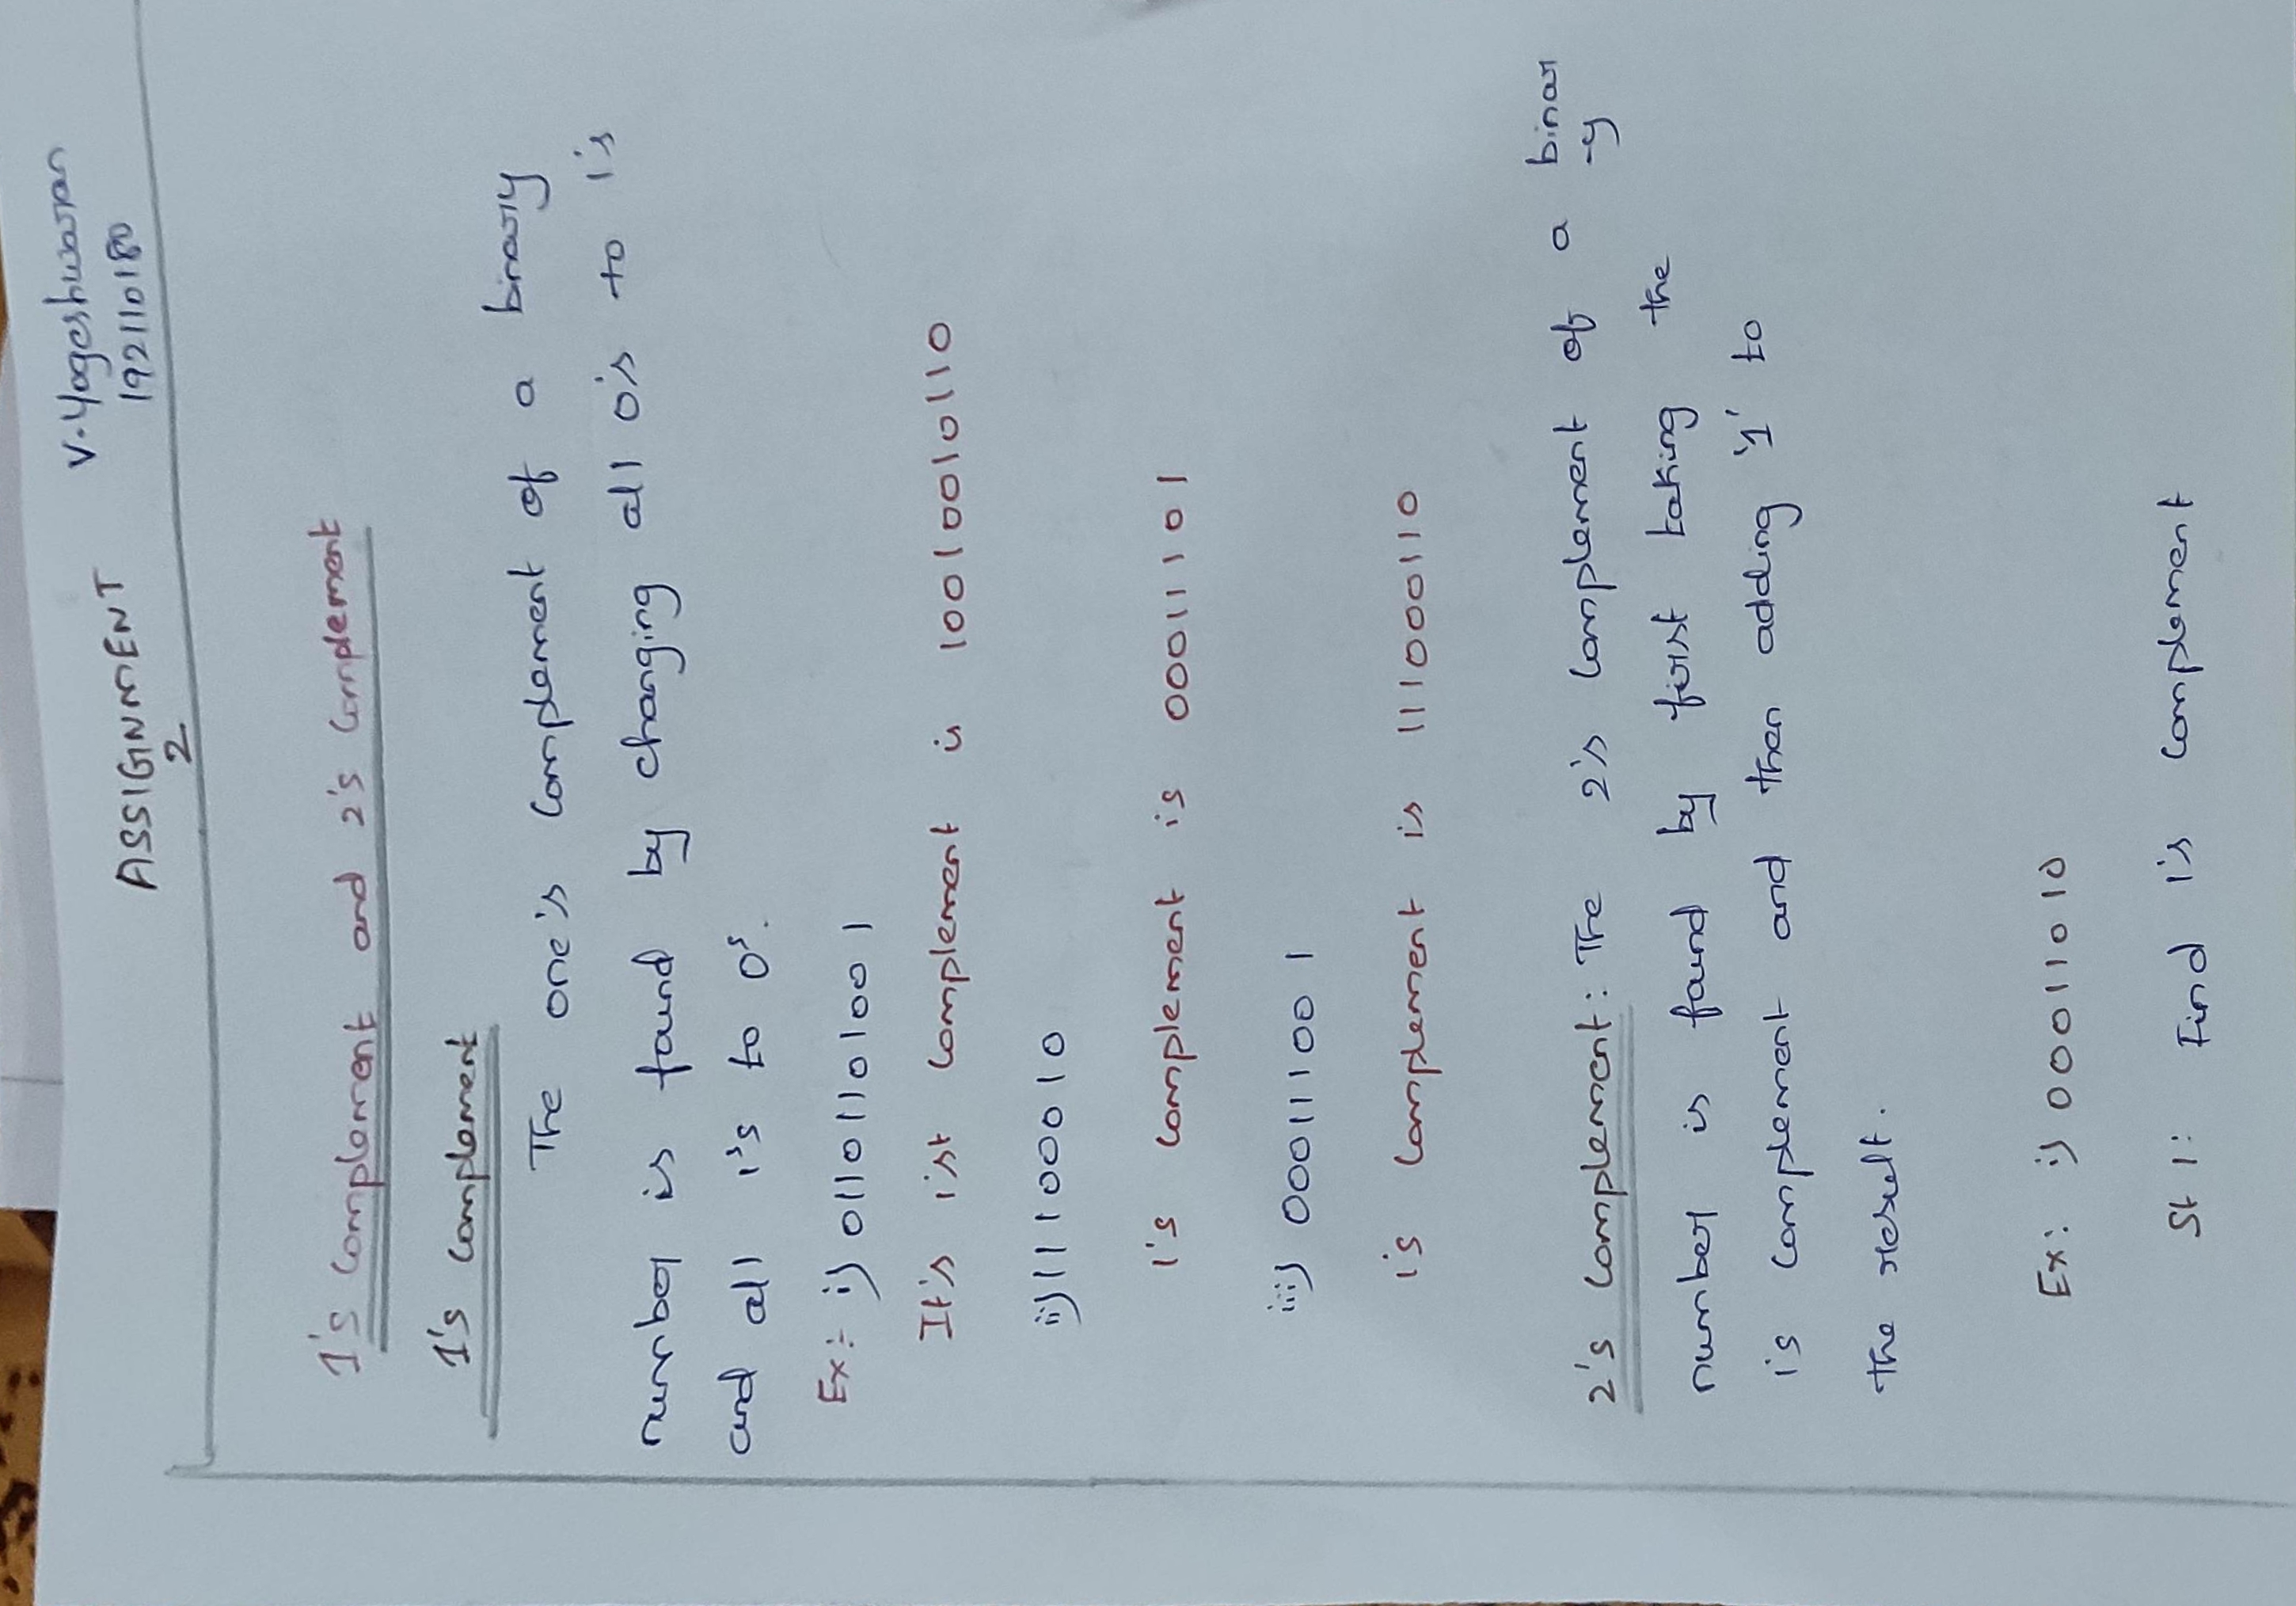 V. Yogeshwaran
ASSIGNMENT
192110180
2
1's complement and 2's complement
1's complement
The one's complement of a binary
number is found by changing all 0's to 1's
and all 1's to 0s.
Ex:- i) 01101101001
It's 1'st complement is 10010010110
ii) 11100010
1's complement is 00011101
iii) 000111001
1's complement is 111000110
2's complement: The 2's complement of a binar
-y
number is found by first taking the
1's complement and then adding '1' to
the result.
Ex: i) 00011010
St 1: Find 1's complement